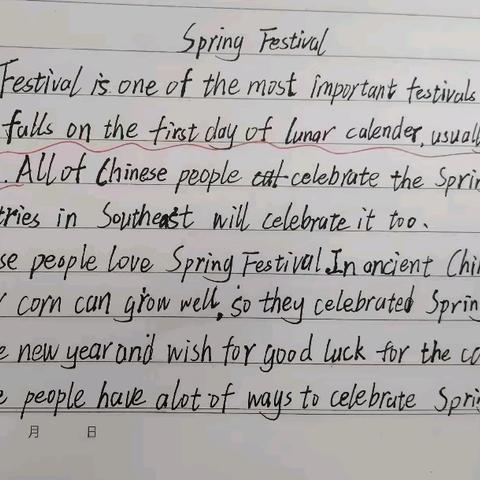 Spring Festival
Festival is one of the most important festivals
falls on the first day of lunar calender, usuall
. All of Chinese people celebrate the Sprin
tries in Southeast will celebrate it too.
se people love Spring Festival. In ancient Chi
corn can grow well, so they celebrated Spring
e new year and wish for good luck for the co
e people have alot of ways to celebrate Spri
月 日